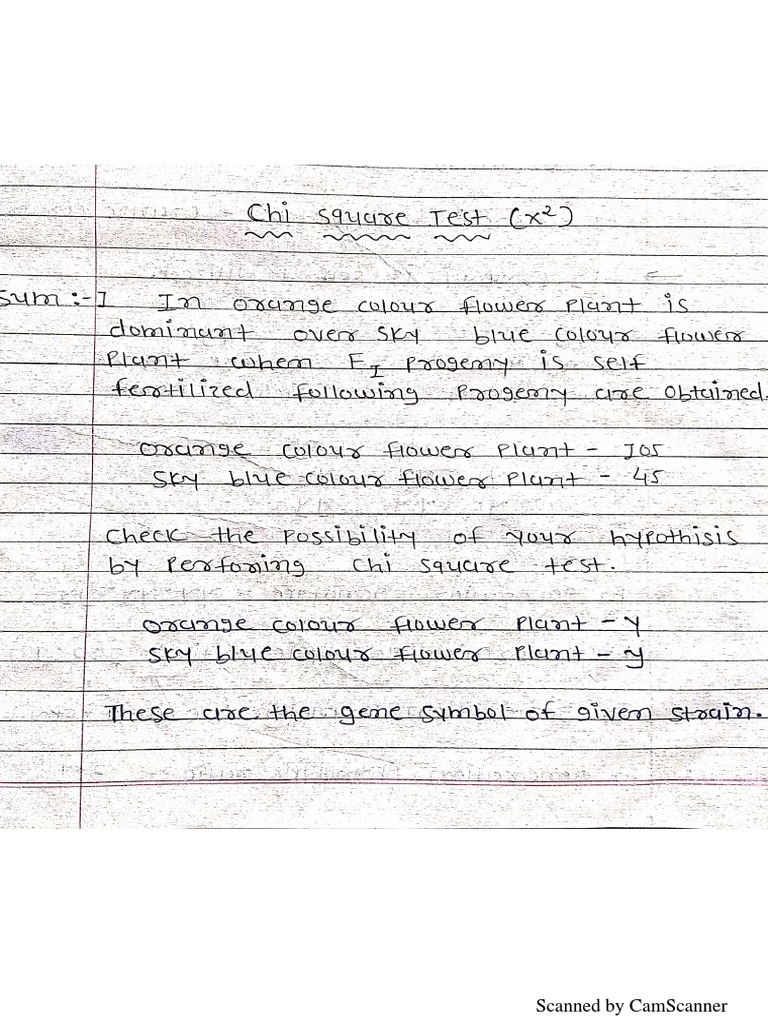 Chi square Test (x²)
Sum:-I In orange colour flower plant is
dominant over sky blue colour flower
plant when F₁ progeny is self
fertilized following progeny are obtained.
orange colour flower plant - 105
sky blue colour flower plant - 45
check the possibility of your hypothisis
by perfoming chi square test.
orange colour flower plant - Y
sky blue colour flower plant - y
These are the gene symbol of given strain.
Scanned by CamScanner